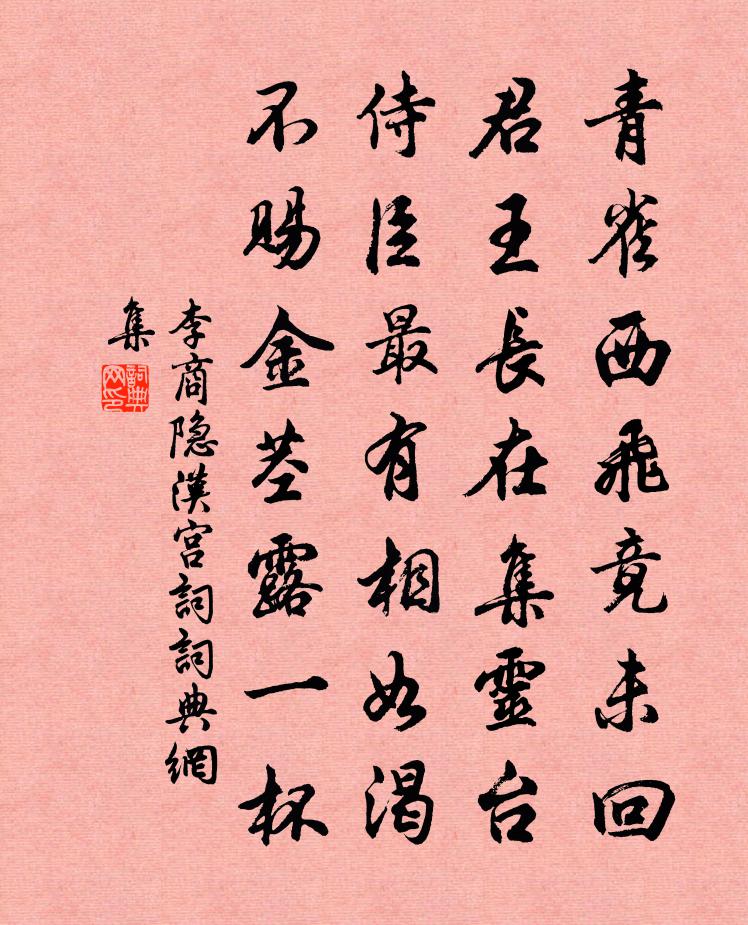 青雀西飛竟未回
君王長在集靈台
侍臣最有相如渴
不賜金莖露一杯
李商隐漢宫詞詞典網
集
詞典
网印